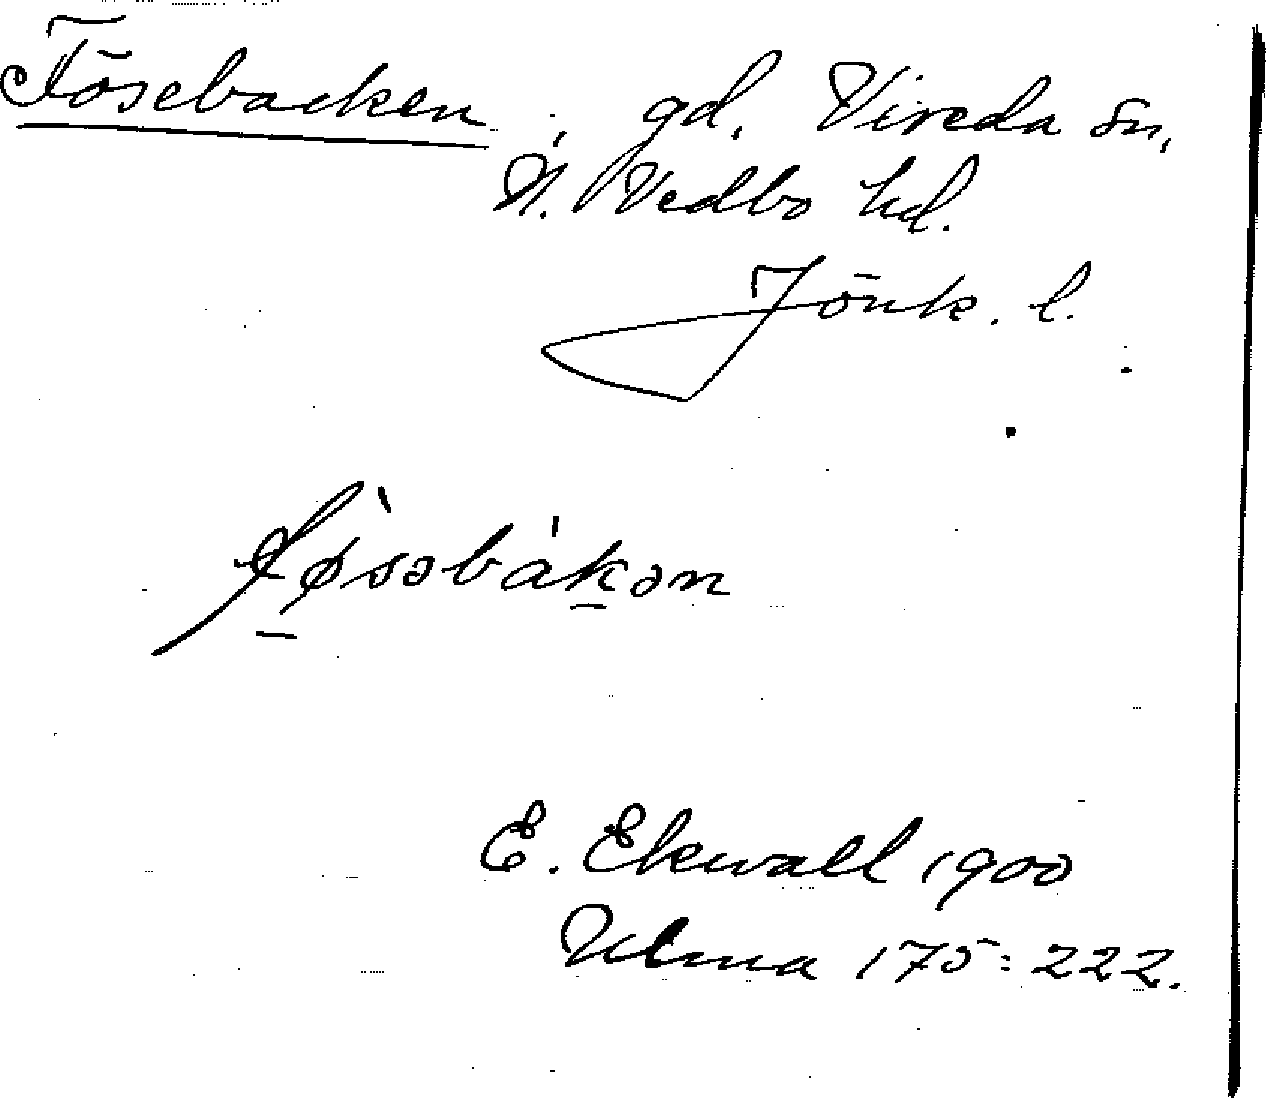 Fösebacken, gd, Vireda sn,
N. Vedbo hd.
Jönk. l.
fø̀səbáḵən
E. Ekwall 1900
Ulma 175:222.